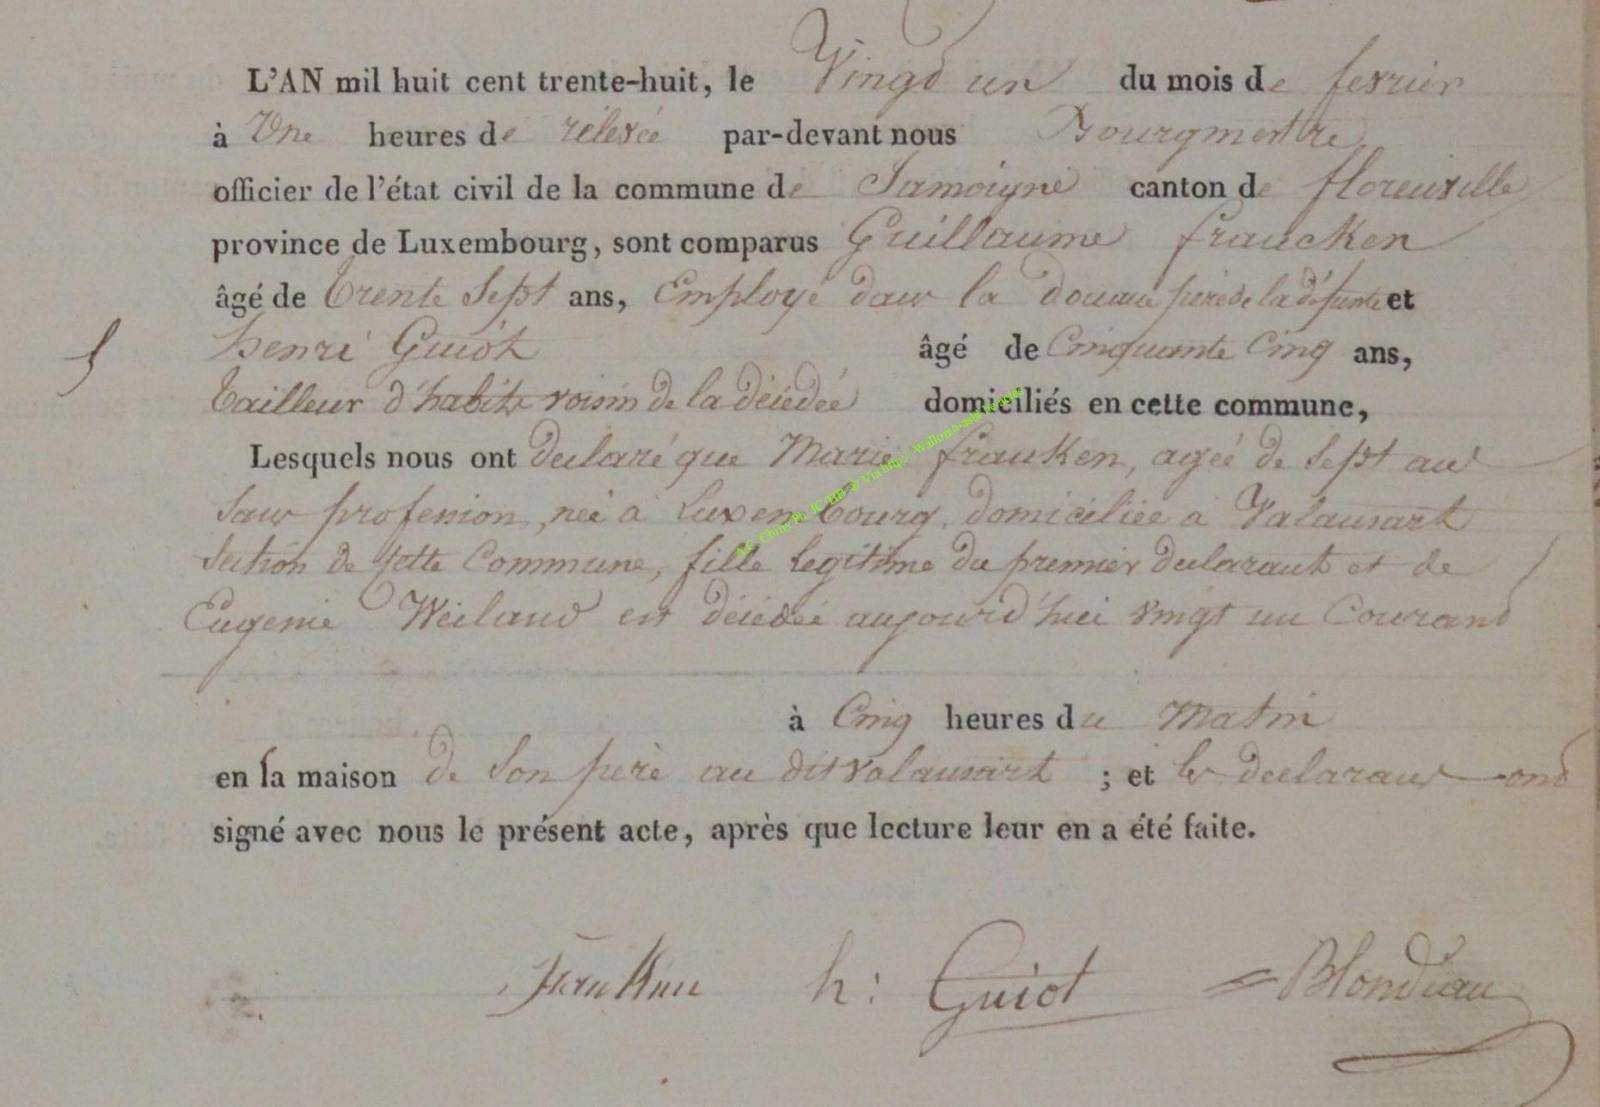 L'AN mil huit cent trente-huit, le Vingd un du mois de fevrier
à Une heures de relevée par-devant nous Bourgmestre
officier de l'état civil de la commune de Jamoigne canton de florenville
province de Luxembourg, sont comparus Guillaume francken
âgé de trente sept ans, Employé dans la douane père de la défunte et
henri Guiot âgé de Cinquante Cinq ans,
tailleur d'habits voisin de la décédée domiciliés en cette commune,
Lesquels nous ont declaré que Marie franken, agée de sept ans
sans profession, née à Luxembourg, domiciliée à Valansart
section de cette Commune, fille legitime du premier declarant et de
Eugenie Weiland est décédée aujourd'hui vingt un Courand
à Cinq heures du Matin
en la maison de son père au dit valansart ; et les declarans ond
signé avec nous le présent acte, après que lecture leur en a été faite.
Franken h: Guiot Blondiau